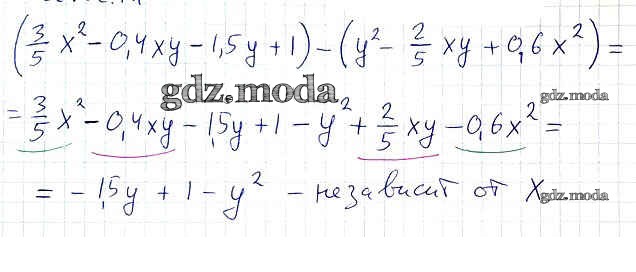 (3/5 x² - 0,4xy - 1,5y + 1) - (y² - 2/5 xy + 0,6x²) =
gdz.moda
gdz.moda
= 3/5 x² - 0,4xy - 1,5y + 1 - y² + 2/5 xy - 0,6x² =
= -1,5y + 1 - y² - независит от х
gdz.moda